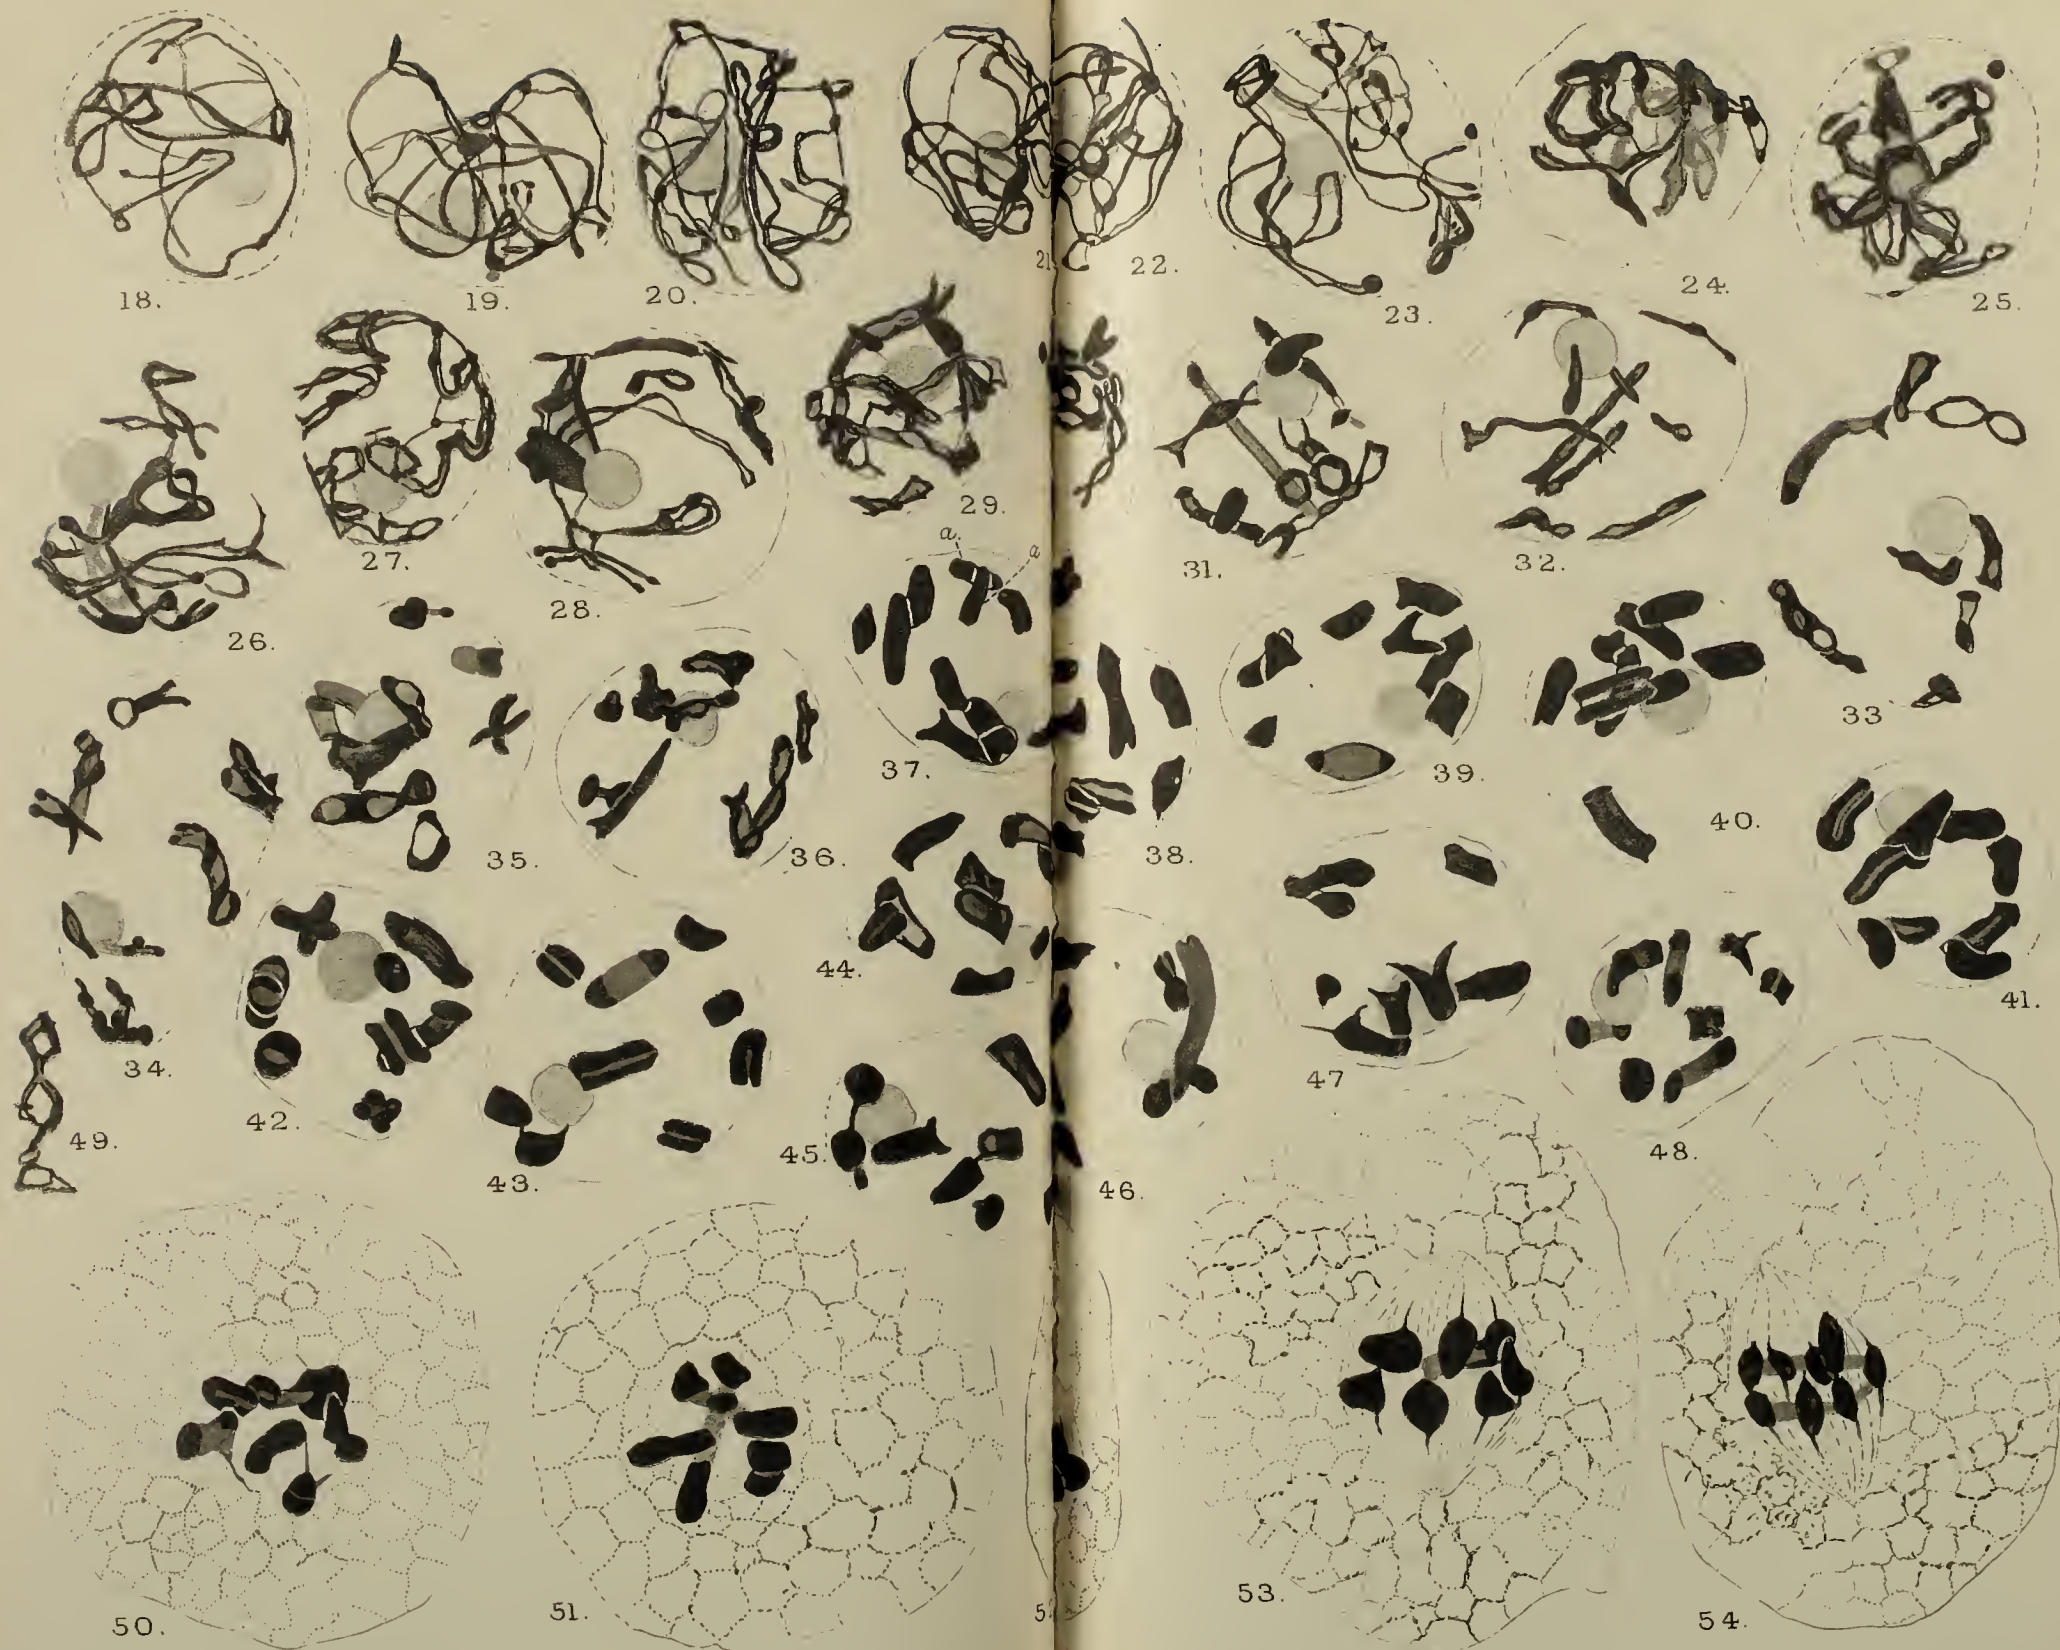 18.
19.
20.
21
22.
23.
24.
25.
26.
27.
28.
29.
31.
32.
33
a
a
34.
35.
36.
37.
38.
39.
40.
41.
42.
43.
44.
45.
46.
47
48.
49.
50.
51.
53.
54.